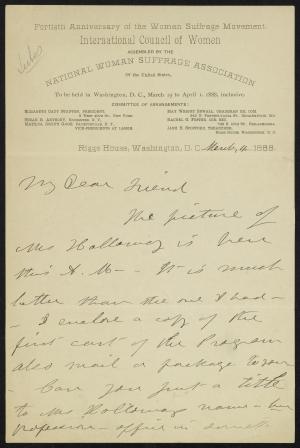 Fortieth Anniversary of the Woman Suffrage Movement.
International Council of Women
ASSEMBLED BY THE
NATIONAL WOMAN SUFFRAGE ASSOCIATION
Of the United States,
To be held in Washington, D. C., March 25 to April 1, 1888, inclusive.
COMMITTEE OF ARRANGEMENTS:
ELIZABETH CADY STANTON, PRESIDENT,
New York.
SUSAN B. ANTHONY, ROCHESTER, N. Y.
MATILDA JOSLYN GAGE, FAYETTEVILLE, N. Y.
VICE-PRESIDENTS AT LARGE.
MAY WRIGHT SEWALL, CHAIRMAN EX. COM.
RACHEL G. FOSTER, COR. SEC.
JANE H. SPOFFORD, TREASURER,
RIGGS HOUSE, WASHINGTON, D. C.
Riggs House, Washington, D. C. March, 4, 1888.
My Dear Friend
The picture of
Mrs Holloway is here
this A. M — It is much
better than the one I had —
— I enclose a copy of the
first cast of the Program
also mail a package to you
— Can you put a title
to Mrs Holloway name — her
profession — office is